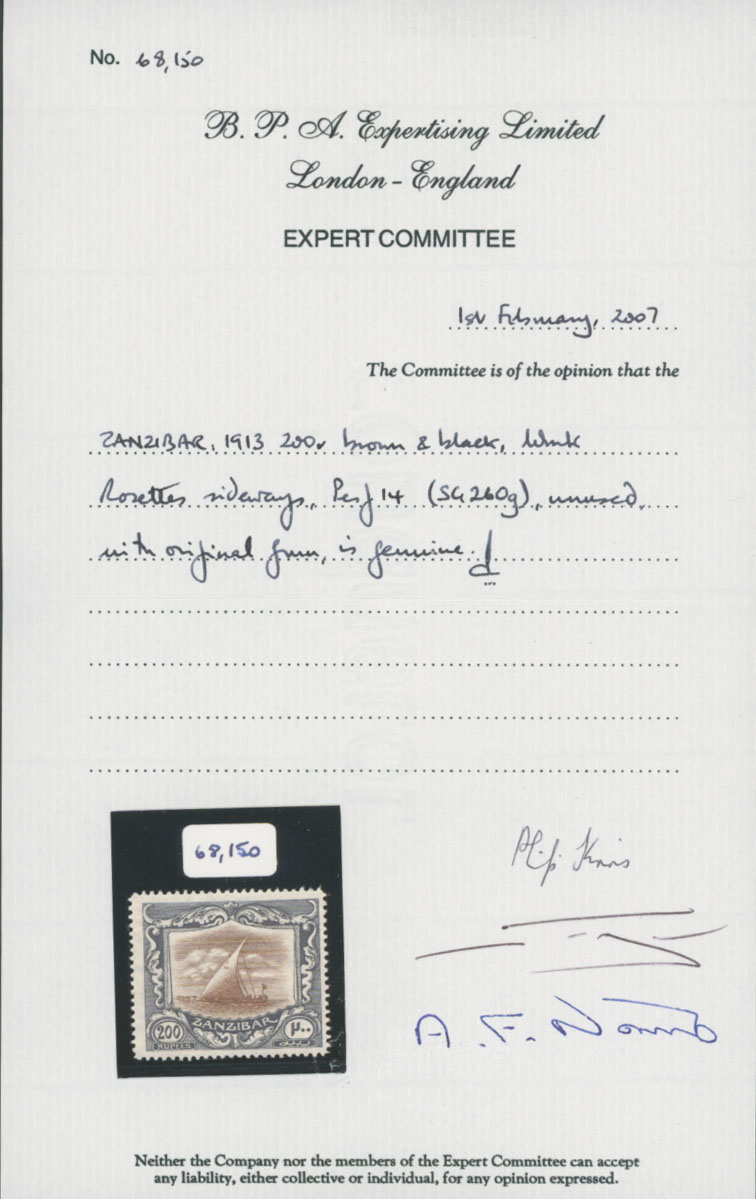 No. 68,150
B. P. A. Expertising Limited
London - England
EXPERT COMMITTEE
1st February, 2007
The Committee is of the opinion that the
ZANZIBAR, 1913 200r brown & black, Wmk
Rosettes sideways, Perf 14 (SG 260g), unused,
with original gum, is genuine.
68,150
ZANZIBAR
200 ٢٠٠
RUPEES
A. F. Norris
Neither the Company nor the members of the Expert Committee can accept
any liability, either collective or individual, for any opinion expressed.